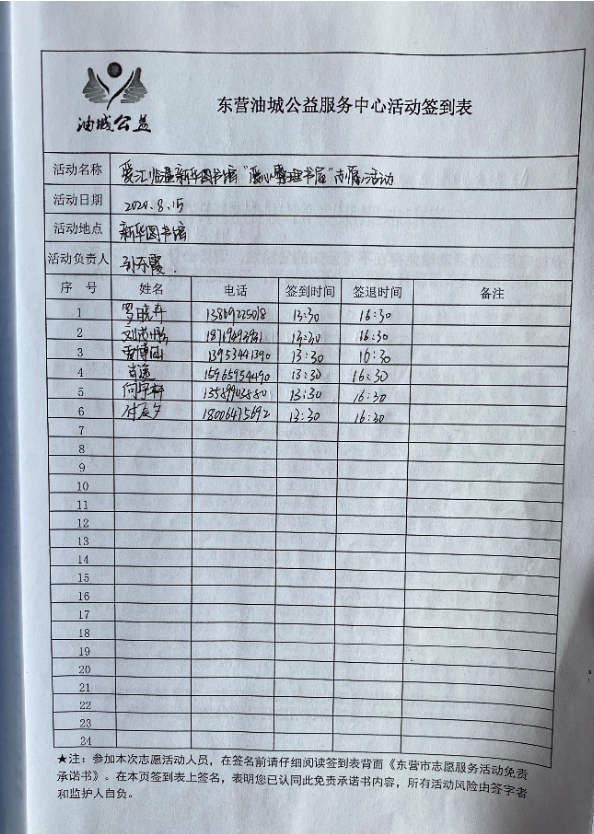 油城公益
东营油城公益服务中心活动签到表
活动名称 爱汇临淄新华图书馆"爱心整理书屋"志愿活动
活动日期 2024.8.15
活动地点 新华图书馆
活动负责人
序 号 姓名 电话 签到时间 签退时间 备注
1 13:30 16:30
2 13:30 16:30
3 13953441390 13:30 16:30
4 肖遥 15965934490 13:30 16:30
5 13:30 16:30
6 18006475692 13:30 16:30
7
8
9
10
11
12
13
14
15
16
17
18
19
20
21
22
23
24
★注：参加本次志愿活动人员，在签名前请仔细阅读签到表背面《东营市志愿服务活动免责
承诺书》。在本页签到表上签名，表明您已认同此免责承诺书内容，所有活动风险由签字者
和监护人自负。